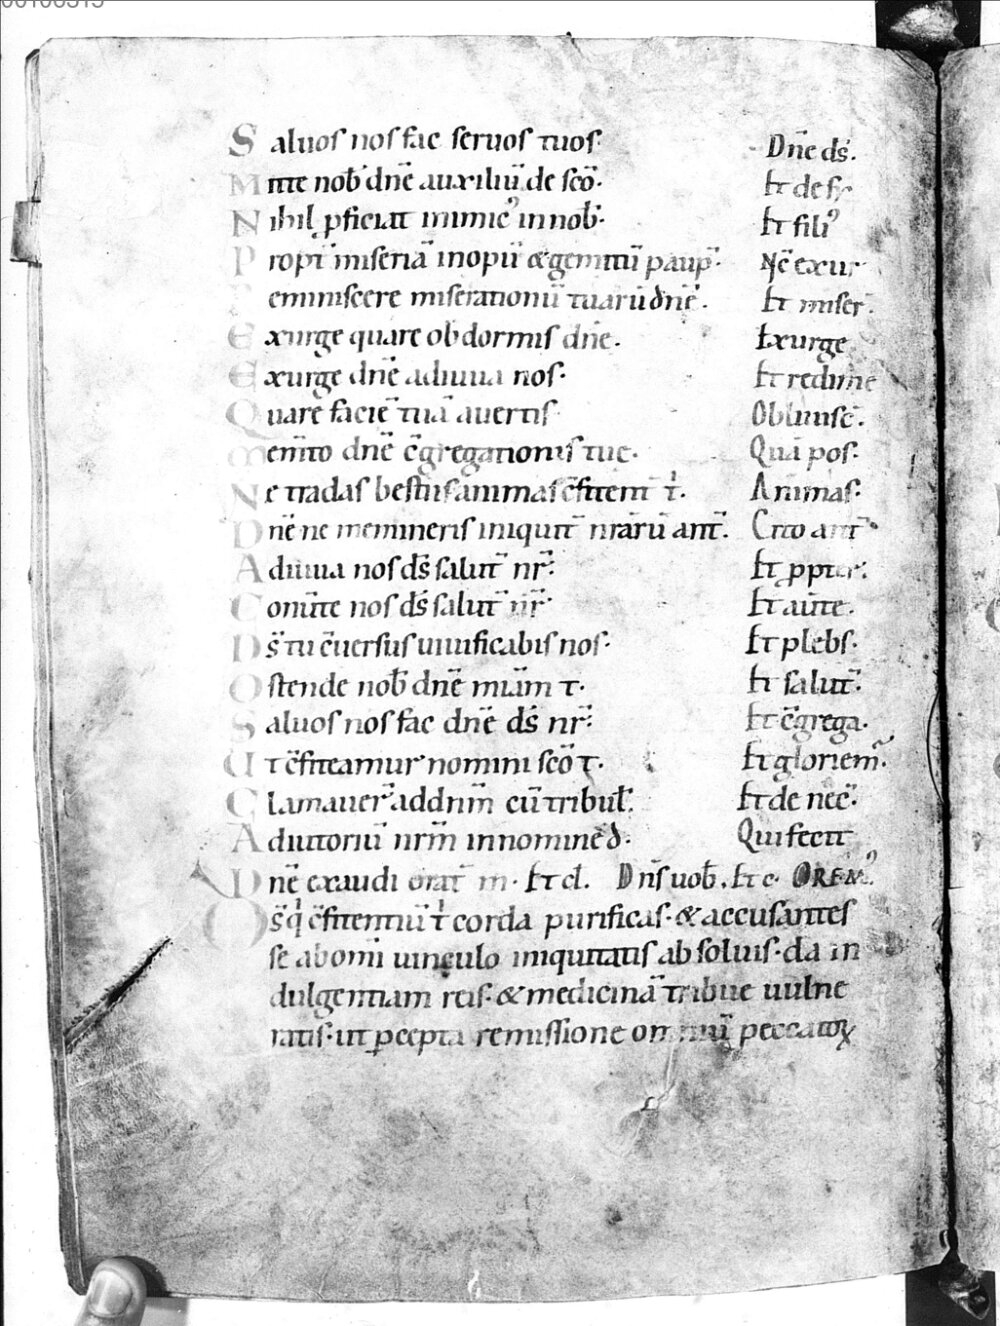 Saluos nos fac seruos tuos· Dn̄e ds̄.
Mitte nob̄ dn̄e auxiliū de sc̄o· Et de sy
Nihil ꝓficiat inimicꝰ in nob̄· Et filiꝰ
Propt̄ miseriā inopū & gemitū paup̄· Nc̄ exur
eminiscere miserationū tuarū dn̄e· Et miser̄.
Exurge quare obdormis dn̄e. Exurge
Exurge dn̄e adiuua nos· Et redime
Quare faciē tuā auertis Obliuisc̄.
Mem̄to dn̄e c̄gregationis tue· Quā pos·
Ne tradas bestiis animas c̄fitent̄ t̄. Animas·
Dn̄e ne memineris iniquit̄ nr̄arū ant̄. Cito ant̄
Adiuua nos ds̄ salut̄ nr̄· Et ꝓpter·
Conūte nos ds̄ salut̄ nr̄· Et aūte.
Ds̄ tu c̄uersus uiuificabis nos· Et plebs·
Ostende nob̄ dn̄e mi͞am t· Et salut̄·
Saluos nos fac dn̄e ds̄ nr̄· Et c̄grega·
Ut c̄fiteamur nomini sc̄o t· Et gloriem̄·
Clamauer̄ ad dn̄m cū tribul̄· Et de nec̄·
Adiutoriū nr̄m in nomine d̄· Qui fecit
Dn̄e exaudi orat̄ m· Et cl. Dn̄s uob̄. Et c· OREMꝰ
Ds̄ q̄ c̄fitentiū t̄ corda purificas· & accusantes
se ab om̄i uinculo iniquitatis absoluis· da in
dulgentiam reis· & medicinā tribue uulne
ratis· ut ꝑcepta remissione omniū peccatoꝝ